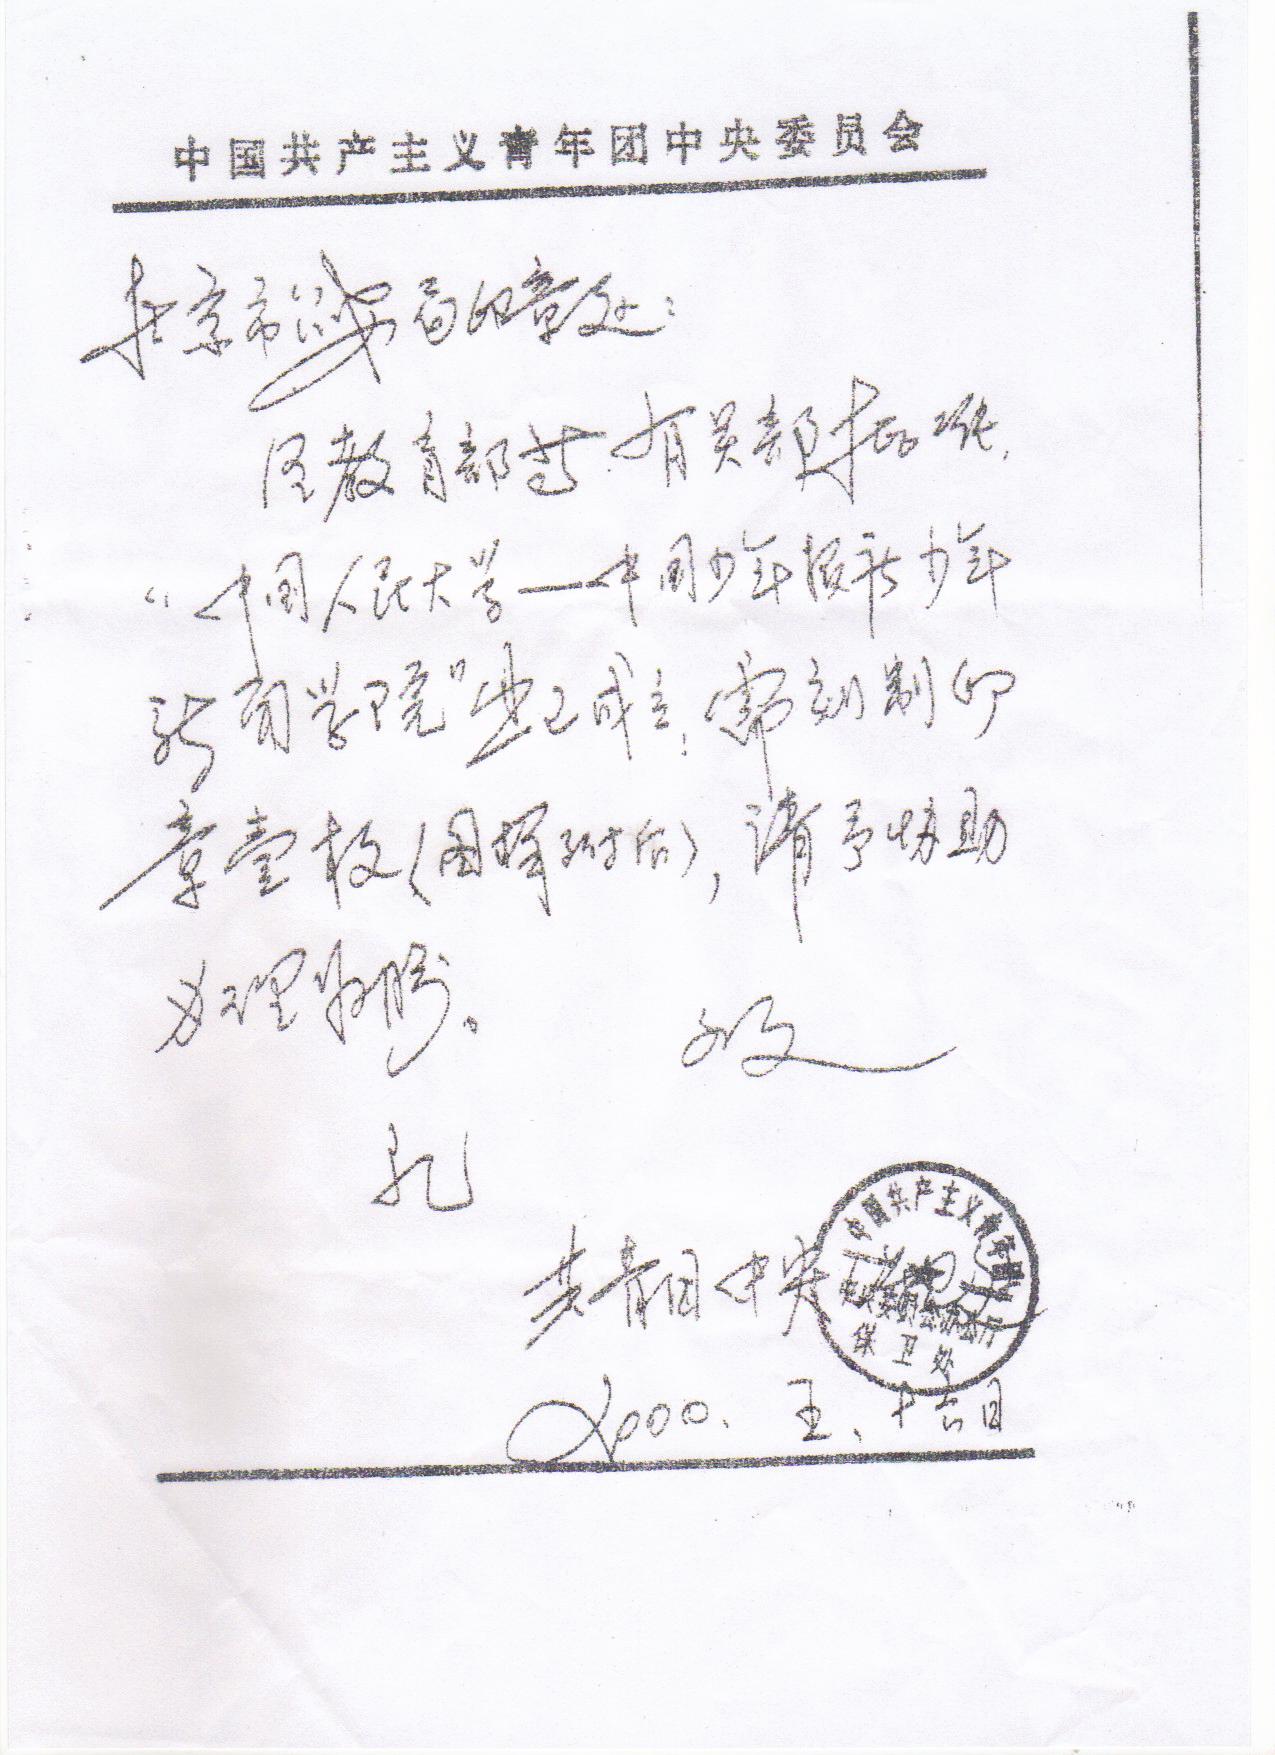 中国共产主义青年团中央委员会
北京市公安局印章处:
经教育部等有关部批准,
“中国人民大学——中国少年报社少年
新闻学院”业已成立,需刻制印
章壹枚(图样附后),请予协助
办理为盼。
致
礼
共青团中央
中国共产主义青年团
中央委员会办公厅
保卫处
2000.五.十六日